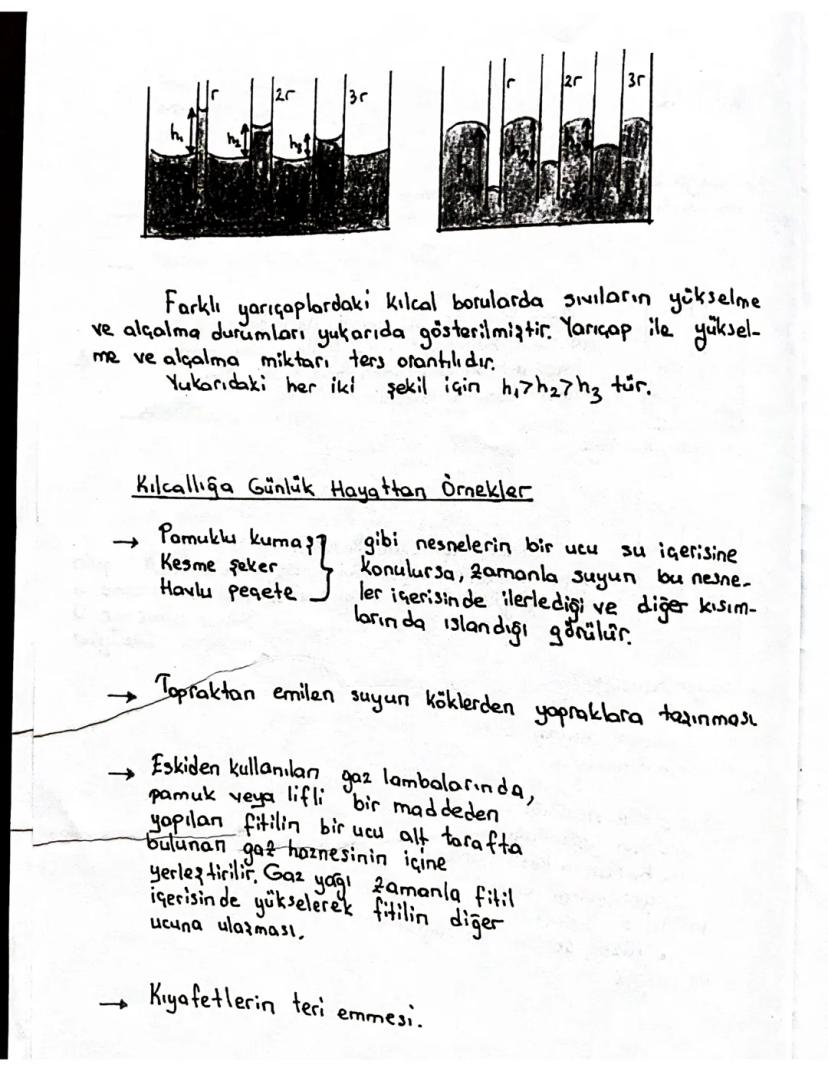 r 2r 3r
h₁ h₂ h₃
r 2r 3r
Farklı yarıçaplardaki kılcal borularda sıvıların yükselme
ve alçalma durumları yukarıda gösterilmiştir. Yarıçap ile yüksel-
me ve alçalma miktarı ters orantılıdır.
Yukarıdaki her iki şekil için h₁>h₂>h₃ tür.
Kılcallığa Günlük Hayattan Örnekler
→ Pamuklu kumaş } gibi nesnelerin bir ucu su içerisine
Kesme şeker konulursa, zamanla suyun bu nesne-
Havlu peçete ler içerisinde ilerlediği ve diğer kısım-
larında ıslandığı görülür.
→ Topraktan emilen suyun köklerden yapraklara taşınması
→ Eskiden kullanılan gaz lambalarında,
pamuk veya lifli bir maddeden
yapılan fitilin bir ucu alt tarafta
bulunan gaz haznesinin içine
yerleştirilir. Gaz yağı zamanla fitil
içerisinde yükselerek fitilin diğer
ucuna ulaşması.
→ Kıyafetlerin teri emmesi.